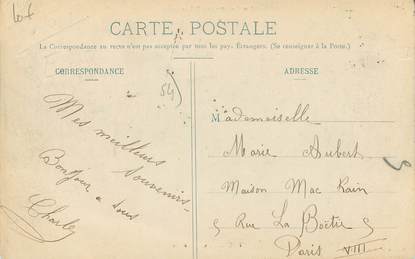 Lot
CARTE POSTALE
La Correspondance au recto n'est pas acceptée par tous les pays Étrangers. (Se renseigner à la Poste.)
CORRESPONDANCE
54
Mes meilleurs
souvenirs
Bonjour à tous
Charles
ADRESSE
Mademoiselle
Marie Aubert
Maison Mac Kain
5 Rue La Boëtie 5
Paris VIII